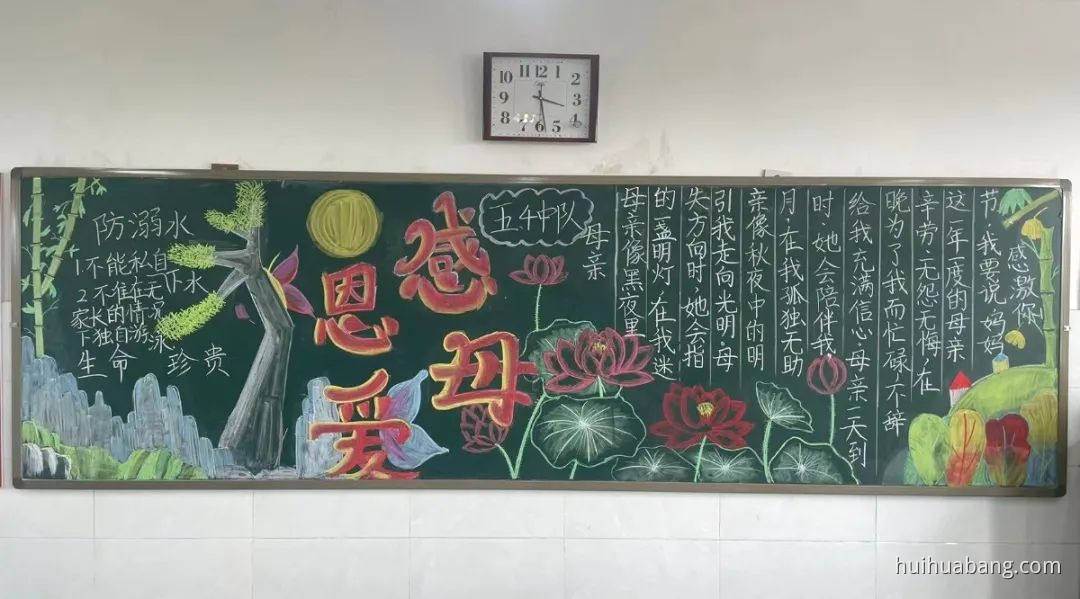 12
11
1
10
2
9
3
8
4
7
6
5
防溺水
1.不能私自
下水
2.不准在无
家长的情况
下独自游泳
生命珍贵
感
恩
母
爱
五.4中队
母亲
母亲像黑夜里
的一盏明灯,在我迷
失方向时,她会指
引我走向光明.母
亲像秋夜中的明
月,在我孤独无助
时,她会陪伴我,
给我充满信心.母亲一天到
晚为了我而忙碌,不辞
辛劳,无怨无悔.在
这一年一度的母亲
节,我要说妈妈
感激你
huihuabang.com